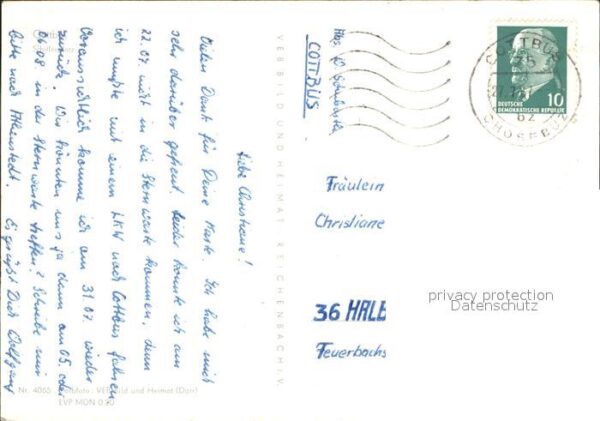 Liebe Christiane!
Vielen Dank für Deine Karte. Ich habe mich
sehr darüber gefreut. Leider konnte ich am
22.07. nicht in die Sternwarte kommen, denn
ich mußte mit einem LKW nach Cottbus fahren
Voraussichtlich komme ich am 31.07. wieder
zurück. Wir könnten uns ja dann am 05. oder
06.08 in der Sternwarte treffen? Schreibe mir
bitte nach Athenstedt. Es grüßt Dich Wolfgang
Nr. 4065 Farbfoto: VEB Bild und Heimat (Darr)
EVP MDN 0.20
VEB BILD UND HEIMAT REICHENBACH i. V.
COTTBUS
COTTBUS
62
CHOŚEBUZ
10
DEUTSCHE
DEMOKRATISCHE REPUBLIK
Fräulein
Christiane
36 HALB
Feuerbachs
privacy protection
Datenschutz